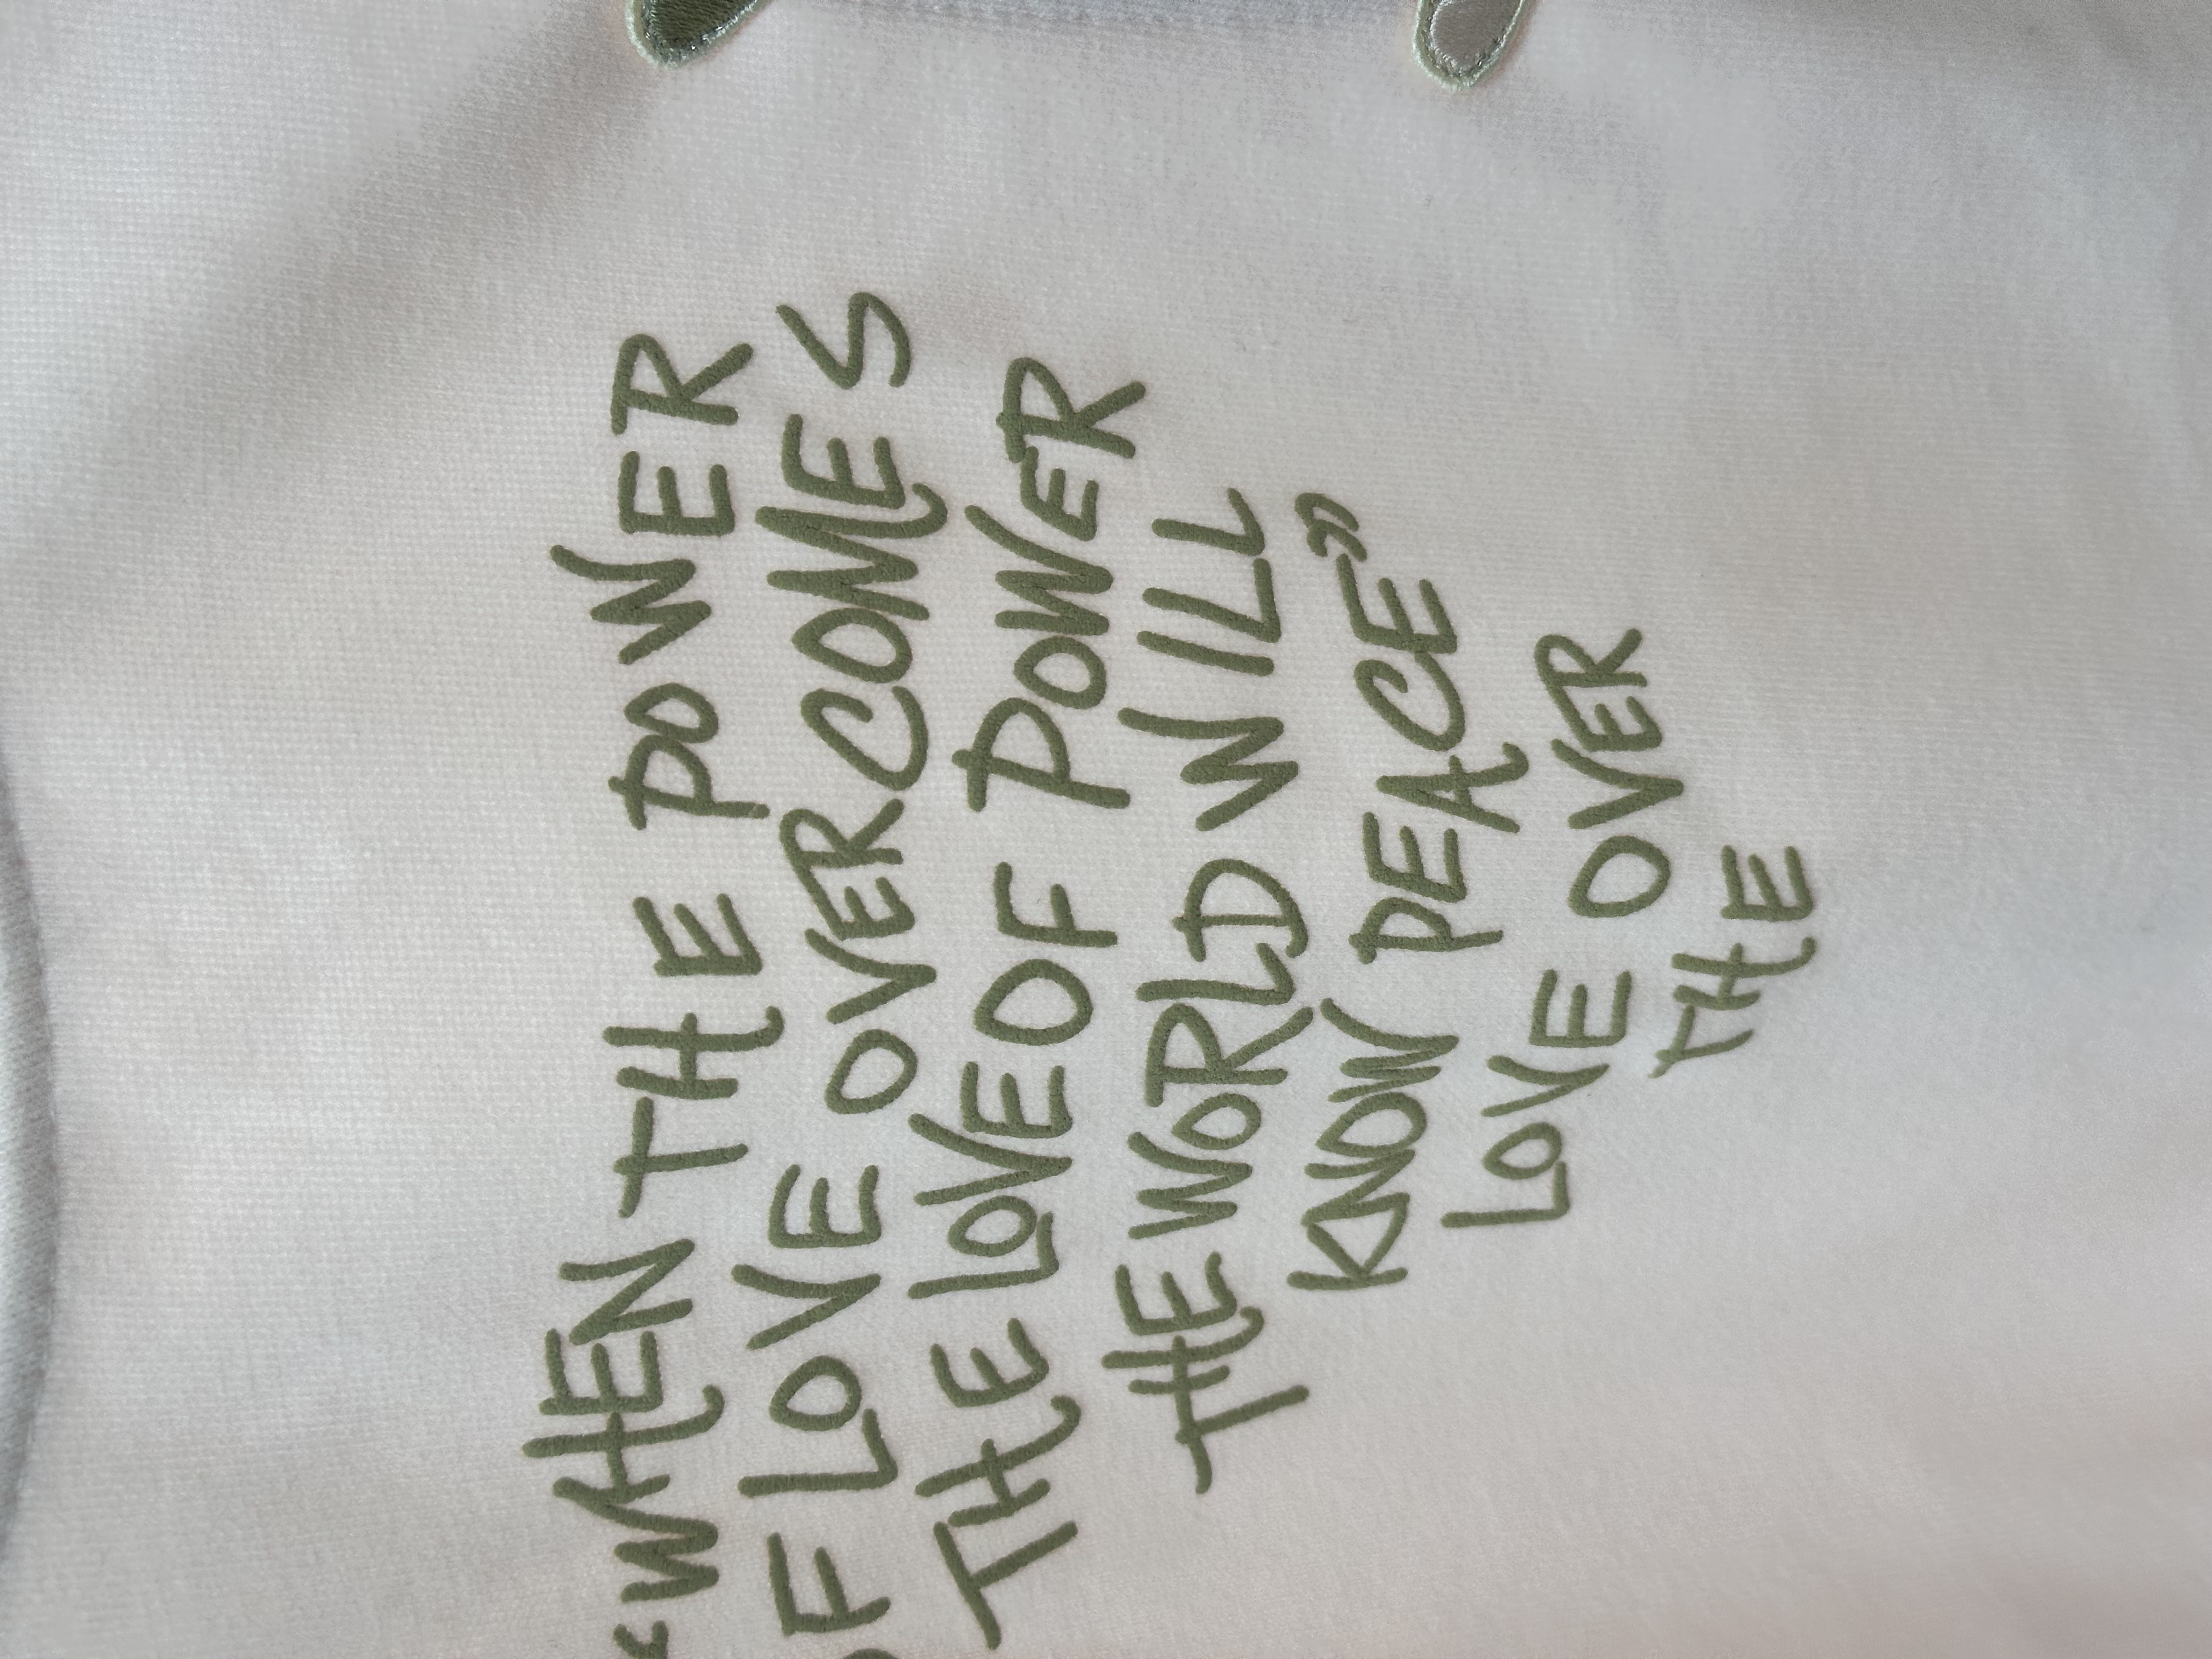 "WHEN THE POWER
OF LOVE OVERCOMES
THE LOVE OF POWER
THE WORLD WILL
KNOW PEACE"
LOVE OVER
THE